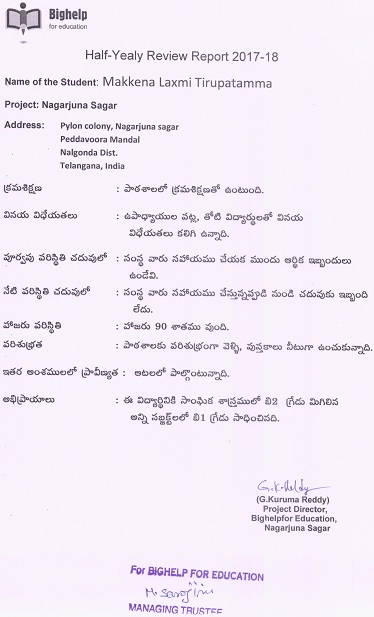 Bighelp
for education
Half-Yealy Review Report 2017-18
Name of the Student: Makkena Laxmi Tirupatamma
Project: Nagarjuna Sagar
Address: Pylon colony, Nagarjuna sagar
Peddavoora Mandal
Nalgonda Dist.
Telangana, India
క్రమశిక్షణ : పాఠశాలలో క్రమశిక్షణతో ఉంటుంది.
వినయ విధేయతలు : ఉపాధ్యాయుల వట్ల, తోటి విద్యార్థులతో వినయ
విధేయతలు కలిగి ఉన్నాది.
పూర్వపు పరిస్థితి చదువులో : సంస్థ వారు సహాయము చేయక ముందు ఆర్థిక ఇబ్బందులు
ఉండేవి.
నేటి పరిస్థితి చదువులో : సంస్థ వారు సహాయము చేస్తున్నప్పడి నుండి చదువుకు ఇబ్బంది
లేదు.
హాజరు పరిస్థితి : హాజరు 90 శాతము వుంది.
పరిశుభ్రత : పాఠశాలకు పరిశుభ్రంగా వెళ్ళి, పుస్తకాలు నీటుగా ఉంచుకున్నాది.
ఇతర అంశములలో ప్రావీణ్యత : ఆటలలో పాల్గొంటున్నాది.
అభిప్రాయాలు : ఈ విద్యార్థినికి సాంఘిక శాస్త్రములో బి2 గ్రేడు మిగిలిన
అన్ని సబ్జక్ట్‌లలో బి1 గ్రేడు సాధించినది.
G.K.Reddy
(G.Kuruma Reddy)
Project Director,
Bighelpfor Education,
Nagarjuna Sagar
For BIGHELP FOR EDUCATION
M. Sarojini
MANAGING TRUSTEE